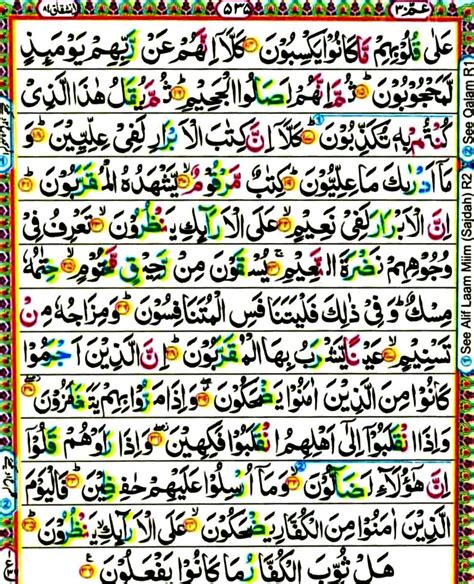 عمّ ۳۰ ۵۳۵ انشقاق ۸۴
عَلٰى قُلُوْبِهِمْ مَّا كَانُوْا يَكْسِبُوْنَ كَلَّاۤ اِنَّهُمْ عَنْ رَّبِّهِمْ يَوْمَىِٕذٍ
لَّمَحْجُوْبُوْنَ ثُمَّ اِنَّهُمْ لَصَالُوا الْجَحِيْمِ ثُمَّ يُقَالُ هٰذَا الَّذِيْ
كُنْتُمْ بِهٖ تُكَذِّبُوْنَ كَلَّاۤ اِنَّ كِتٰبَ الْاَبْرَارِ لَفِيْ عِلِّيِّيْنَ وَ
مَاۤ اَدْرٰىكَ مَا عِلِّيُّوْنَ كِتٰبٌ مَّرْقُوْمٌ يَّشْهَدُهُ الْمُقَرَّبُوْنَ
اِنَّ الْاَبْرَارَ لَفِيْ نَعِيْمٍ عَلَى الْاَرَآىِٕكِ يَنْظُرُوْنَ تَعْرِفُ فِيْ
وُجُوْهِهِمْ نَضْرَةَ النَّعِيْمِ يُسْقَوْنَ مِنْ رَّحِيْقٍ مَّخْتُوْمٍ خِتٰمُهٗ
مِسْكٌ وَفِيْ ذٰلِكَ فَلْيَتَنَافَسِ الْمُتَنَافِسُوْنَ وَمِزَاجُهٗ مِنْ
تَسْنِيْمٍ عَيْنًا يَّشْرَبُ بِهَا الْمُقَرَّبُوْنَ اِنَّ الَّذِيْنَ اَجْرَمُوْا
كَانُوْا مِنَ الَّذِيْنَ اٰمَنُوْا يَضْحَكُوْنَ وَاِذَا مَرُّوْا بِهِمْ يَتَغَامَزُوْنَ
وَاِذَا انْقَلَبُوْۤا اِلٰۤى اَهْلِهِمُ انْقَلَبُوْا فَكِهِيْنَ وَاِذَا رَاَوْهُمْ قَالُوْۤا
اِنَّ هٰۤؤُلَآءِ لَضَآلُّوْنَ وَمَاۤ اُرْسِلُوْا عَلَيْهِمْ حٰفِظِيْنَ فَالْيَوْمَ
الَّذِيْنَ اٰمَنُوْا مِنَ الْكُفَّارِ يَضْحَكُوْنَ عَلَى الْاَرَآىِٕكِ يَنْظُرُوْنَ
هَلْ ثُوِّبَ الْكُفَّارُ مَا كَانُوْا يَفْعَلُوْنَ
① See Alif Laam Miim (Sajdah) R2
② See Qalam R1